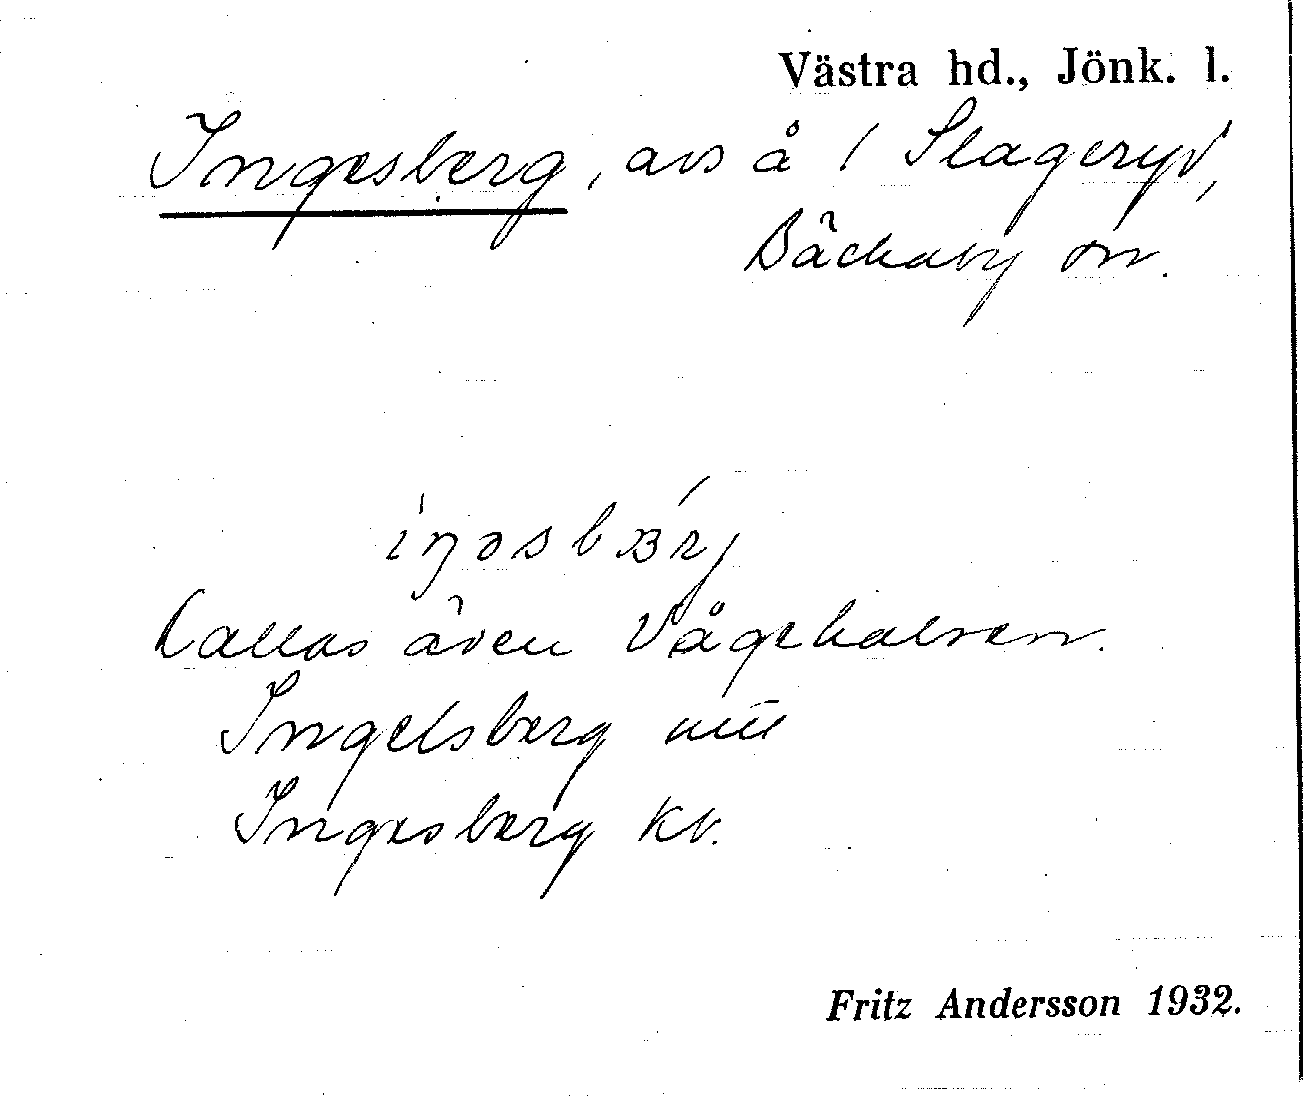 Västra hd., Jönk. l.
Ingesberg, avs å / Slageryd,
Bäckaby sn.
iŋəsbærj
Kallas även Vågehalsen.
Ingelsberg
Ingesberg Kb.
Fritz Andersson 1932.